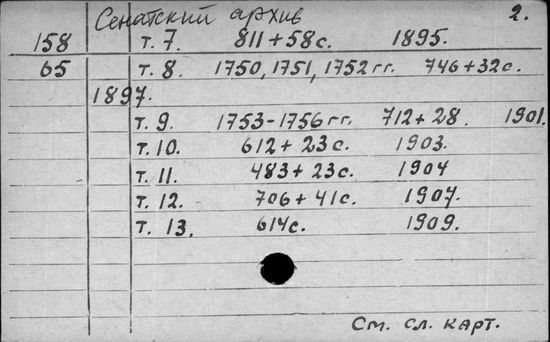 Сенатский архив 2.
158 т. 7. 811 + 58 с. 1895.
65 т. 8. 1750, 1751, 1752 гг. 746 + 32 с.
1897.
т. 9. 1753-1756 гг. 712 + 28. 1901.
т. 10. 612 + 23 с. 1903.
т. 11. 483 + 23 с. 1904
т. 12. 706 + 41 с. 1907.
т. 13. 614 с. 1909.
См. сл. карт.